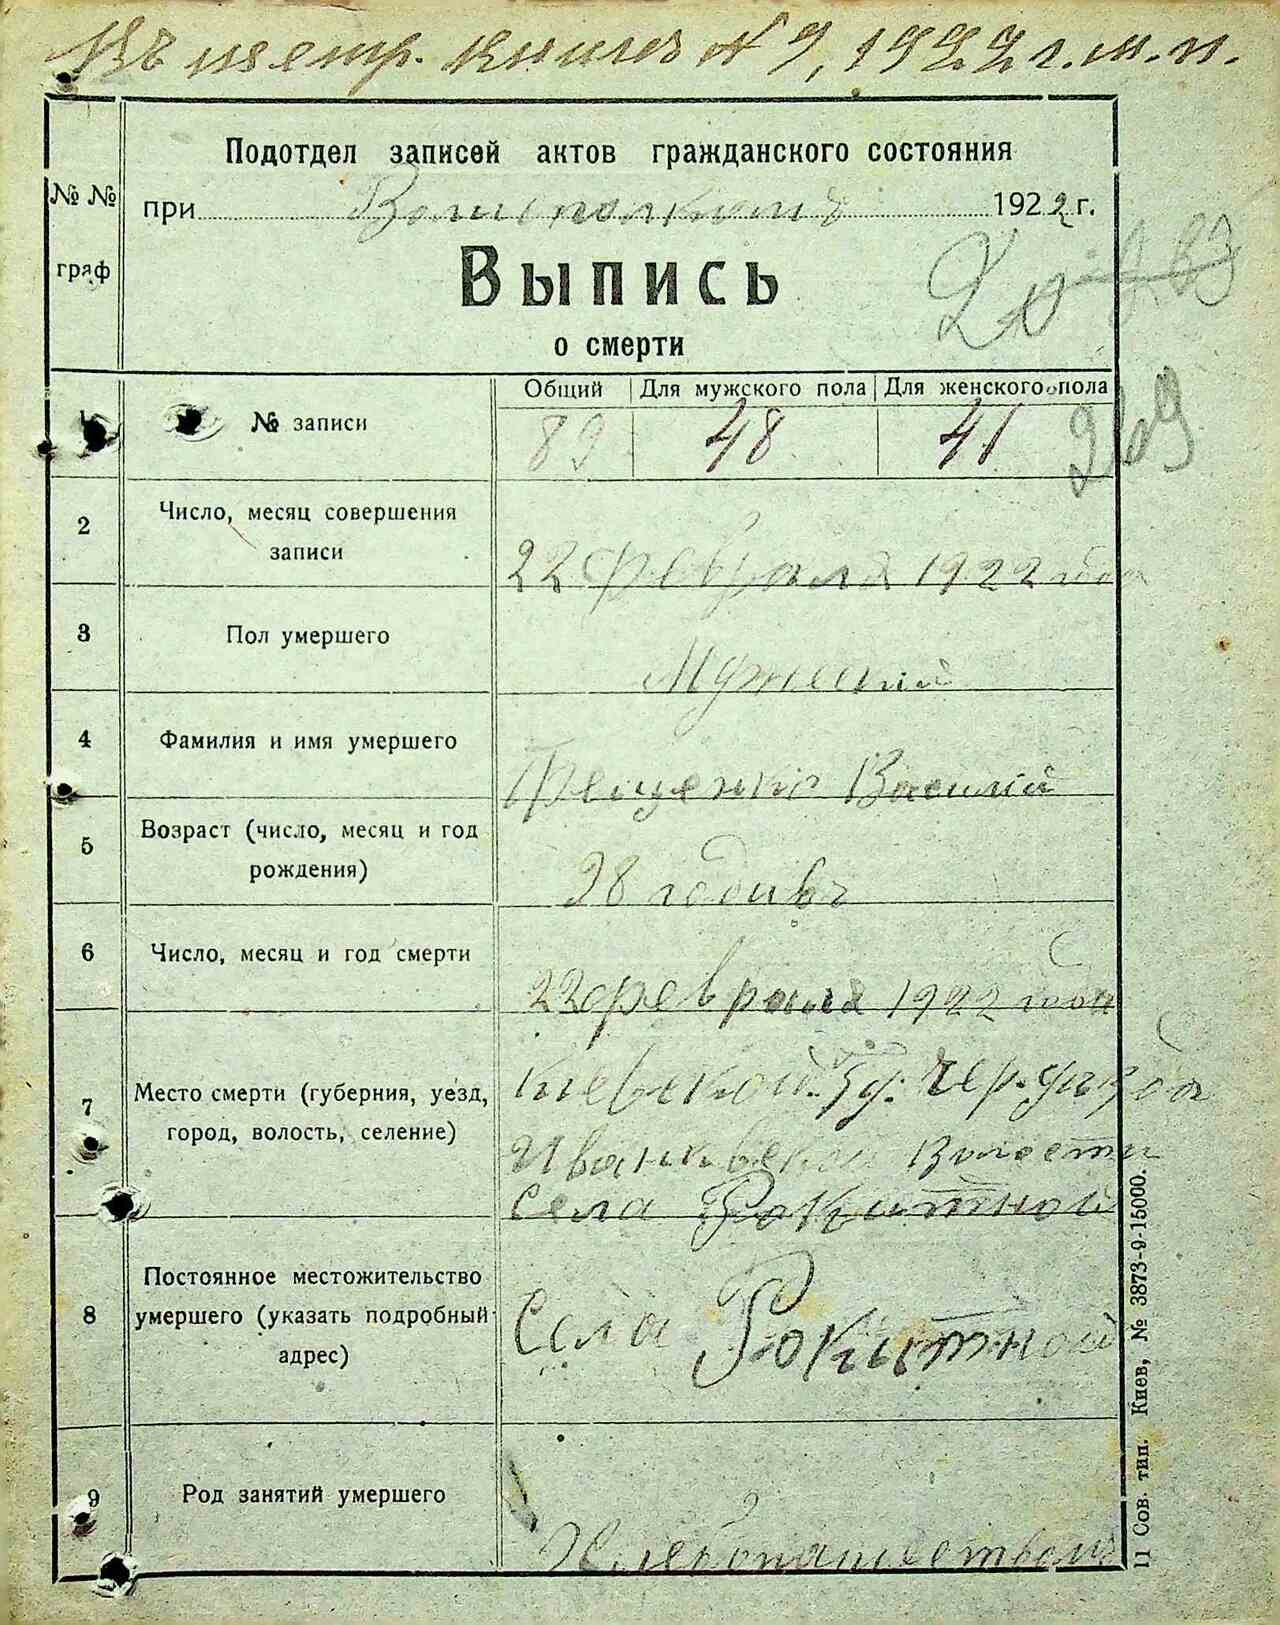 Къ метр. книгъ N 9, 1922 г. м. п.
Подотдел записей актов гражданского состояния
№ №
граф
при Волисполкомъ 1922 г.
Выпись
о смерти
Общий Для мужского пола Для женского пола
1 № записи 89 48 41
249
2 Число, месяц совершения
записи
22 февраля 1922 года
3 Пол умершего
Мужский
4 Фамилия и имя умершего
Фещенко Василий
5 Возраст (число, месяц и год
рождения)
28 годивъ
6 Число, месяц и год смерти
22 февраля 1922 года
7 Место смерти (губерния, уезд,
город, волость, селение)
Киевской Гу. Чер. уъзда
Иванквской Волости
Села Рокитной
8 Постоянное местожительство
умершего (указать подробный
адрес)
Села Рокитной
9 Род занятий умершего
Хлебопашеством
11 Сов. тип. Киев, № 3873-9-15000.